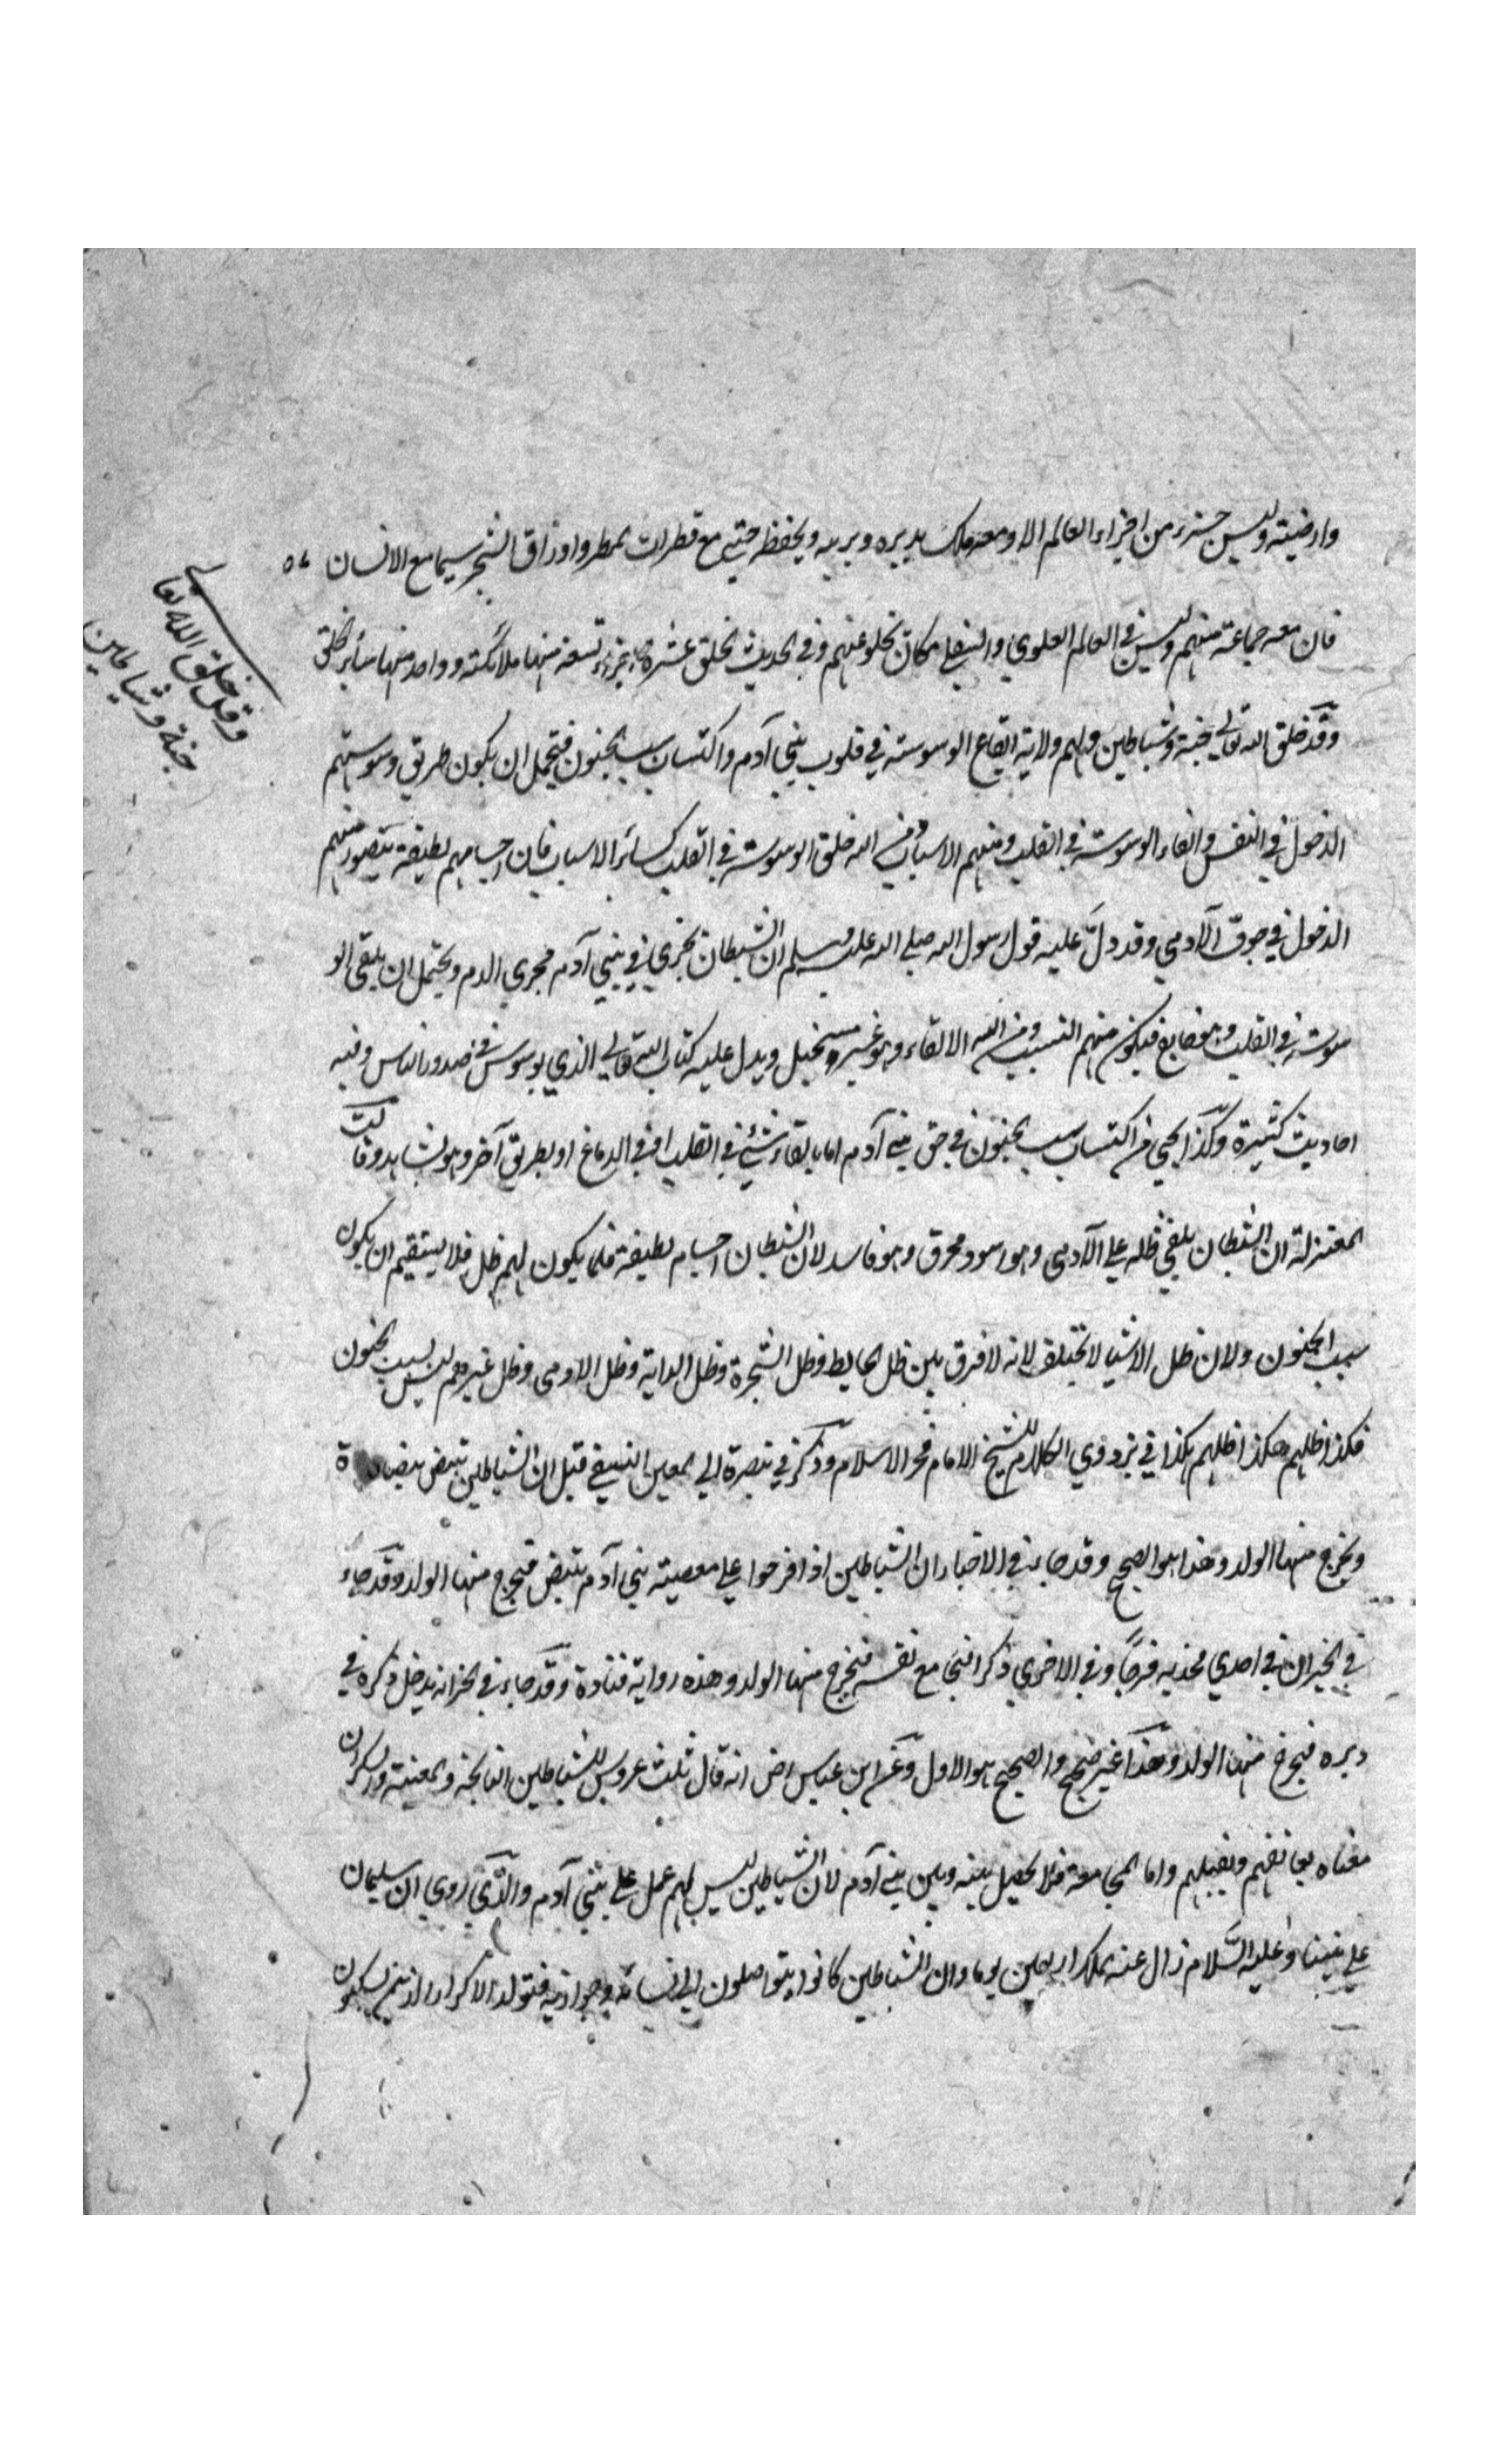 وارضيته وليس جزء من اجزاء العالم الا ومعه ملك يدبره ويربيه ويحفظه حتى مع قطرات المطر واوراق الشجر سيما مع الانسان
فان معه جماعة منهم وليس في العالم العلوي والسفلي مكان تخلو عنهم وفي الحديث الخلق عشرة اجزاء تسعة منها ملائكة وواحد منها سائر الخلق
وقد خلق الله تعالى جنة وشياطين ولهم ولاية ايقاع الوسوسة في قلوب بني آدم واكتساب سبب الجنون فيحتمل ان يكون طريق وسوستهم
الدخول في النفس والقاء الوسوسة في القلب ومنهم الاسباب ومن الله خلق الوسوسة في القلب كسائر الاسباب فان اجسامهم لطيفة يتصور منهم
الدخول في جوف الآدمي وقد دلّ عليه قول رسول الله صلى الله عليه وسلم ان الشيطان يجري في بني آدم مجرى الدم ويحتمل ان يلقى الو
سوسة في القلب وهو ضايع فيكون منهم التسبيب ومن الله الالقاء وهو غير مستحيل ويدل عليه كتاب الله تعالى الذي يوسوس في صدور الناس وفيه
احاديث كثيرة وكذا الجن اكتساب سبب الجنون في حق بني آدم اما بالقاء شيء في القلب او في الدماغ او بطريق آخر وهو يشاهد وقالت
المعتزلة ان الشيطان يلقي ظله على الآدمي وهو اسود محرق وهو فاسد لان الشيطان اجسام لطيفة فلما يكون لهم ظل فلا يستقيم ان يكون
سبب الجنون ولان ظل الاشياء لا تختلف لانه لا فرق بين ظل الحايط وظل الشجرة وظل الدابة وظل الادمي وظل غيرهم ليس بسبب الجنون
فكذا ظلهم هكذا ظلهم هكذا في بزدوي الكلام للشيخ الامام فخر الاسلام وذكر في تبصرة ابي المعين النسفي قيل ان الشياطين تبيض بيضات
ويخرج منها الولد وهذا هو الصحيح وقد جاء في الاخبار ان الشياطين اذا فرحوا على معصية بني آدم تبيض فيخرج منها الولد وقد جاء
في الخبر ان في احدى فخذيه فرجًا وفي الاخرى ذكرا فيجامع نفسه فيخرج منها الولد وهذه رواية قتادة وقد جاء في الخبر انه يدخل ذكره في
دبره فيخرج منها الولد وهذا غير صحيح والصحيح هو الاول وعن ابن عباس رض انه قال ثلث عروس للشياطين النائحة والمغنية والسكران
معناه يعانقهم ويقبلهم واما المجامعة فلا يحصل بينه وبين بني آدم لان الشياطين ليس لهم عمل على بني آدم والذي روي ان سليمان
على نبينا وعليه السلام زال عنه الملك اربعين يوما وان الشياطين كانوا يتواصلون الى نسائه وجواريه فتولد الاكراد الذين يسكنون
وقد خلق الله تعالى
جنة وشياطين